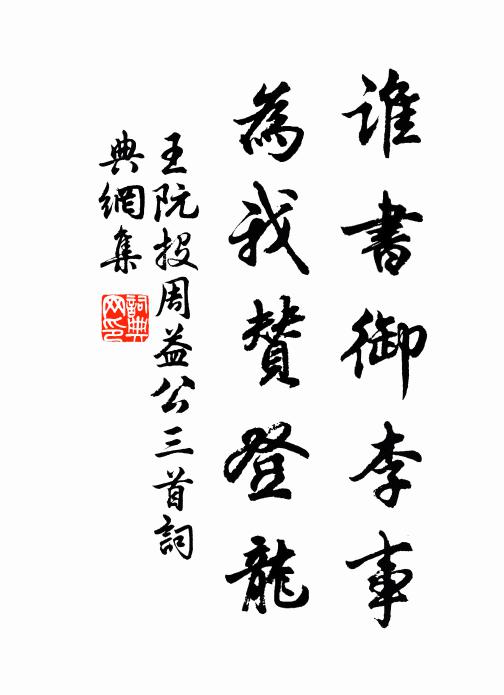 誰書御李事
為我贊登龍
王阮投周益公三首詞
典網集
詞典网印